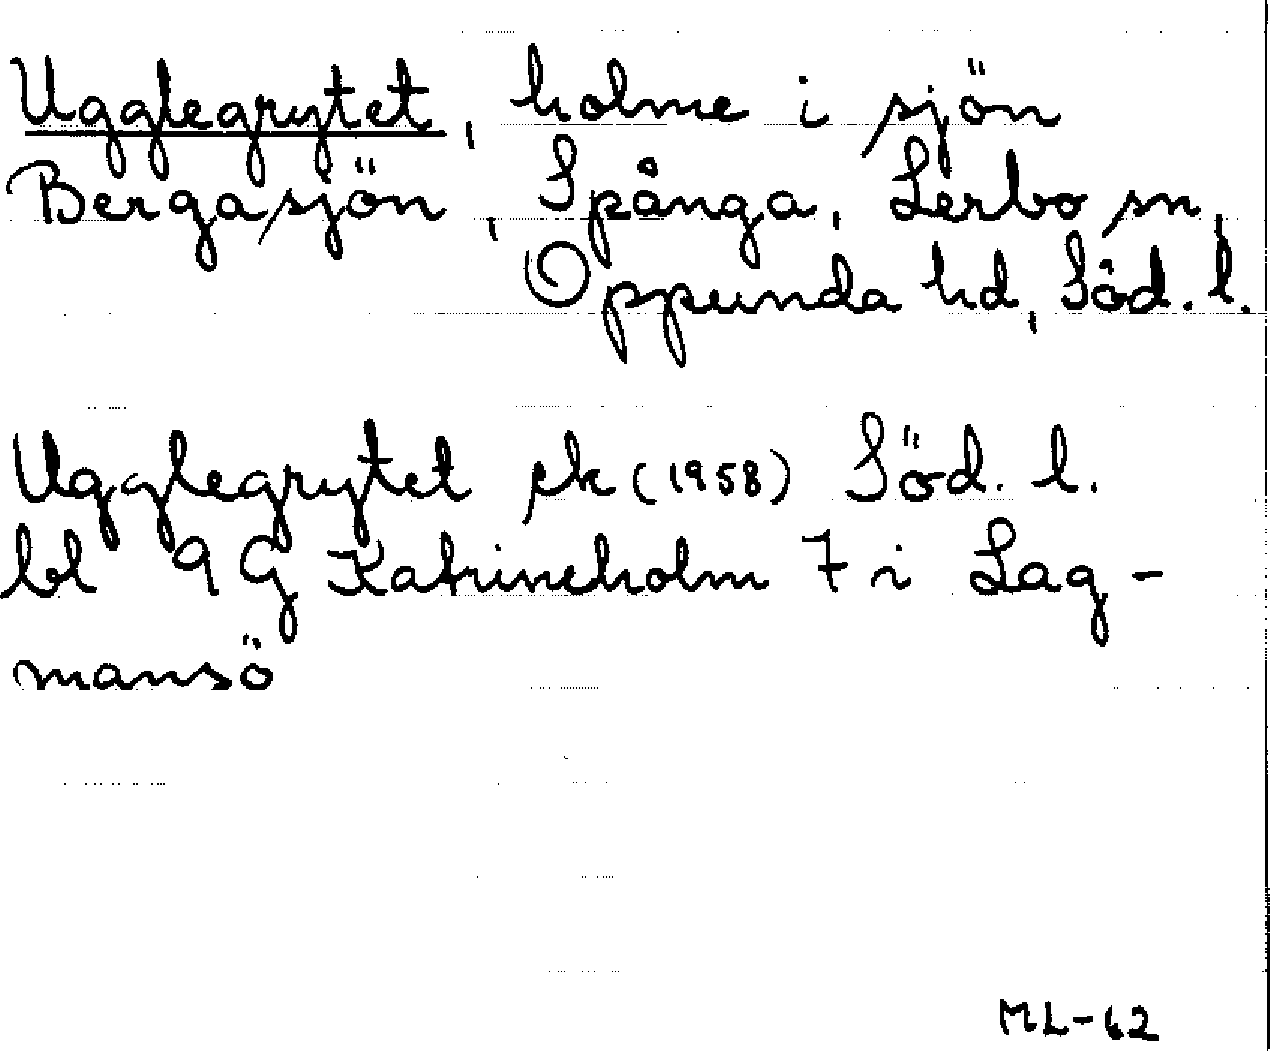 Ugglegrytet, holme i sjön
Bergasjön, Spånga, Lerbo sn,
Oppunda hd, Söd. l.
Ugglegrytet ek (1958) Söd. l.
bl 9G Katrineholm 7 i Lag-
mansö
ML-62